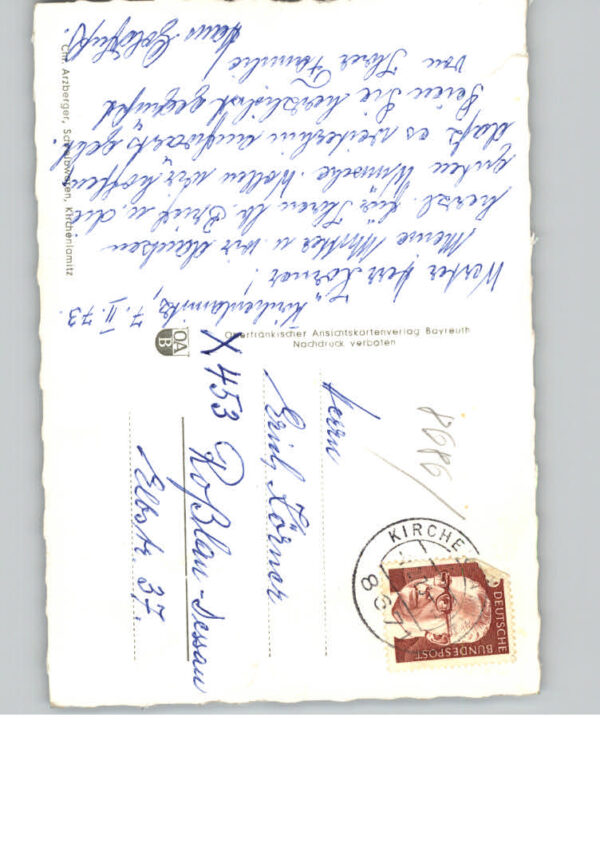 Kirchenlamitz, 7.II.73.
Werter Herr Körner!
Meine Mutter u. wir danken
herzl. für Ihren lb. Brief u. die
guten Wünsche. Wollen wir hoffen
daß es weiterhin aufwärts geht.
Seien Sie herzlichst gegrüßt
von Ihrer Familie
Hans
Chr. Arzberger, Schreibwaren, Kirchenlamitz
OA
B
Oberfränkischer Ansichtskartenverlag Bayreuth
Nachdruck verboten
Herrn
Erich Körner
X 453 Roßlau-Dessau
Elbstr. 37.
8686
KIRCHE
867
DEUTSCHE
BUNDESPOST